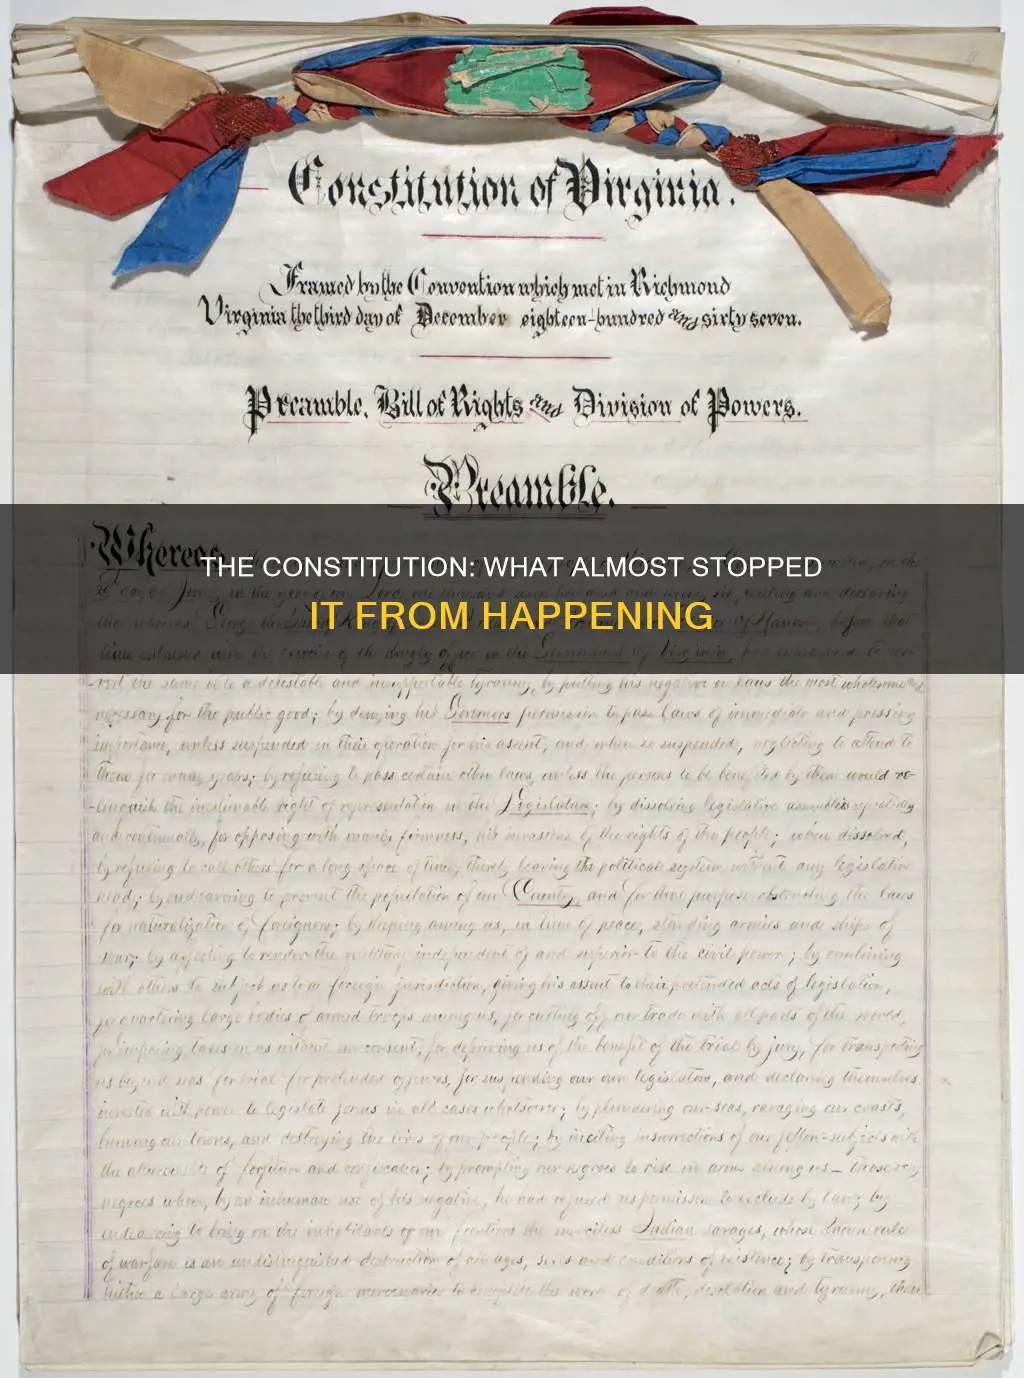 Constitution of Virginia.
Framed by the Convention which met in Richmond
Virginia the third day of December eighteen-hundred and sixty seven.
Preamble, Bill of Rights and Division of Powers.
Preamble.
Whereas
THE CONSTITUTION: WHAT ALMOST STOPPED
IT FROM HAPPENING
time entrusted with the exercise of the kingly office in the Government of Virginia,
-vert the same into a detestable and insupportable tyranny, by putting his negative on laws the most wholesome and
necessary for the public good; by denying his Governors permission to pass laws of immediate and pressing
importance, unless suspended in their operation for his assent, and when so suspended, neglecting to attend to
them for many years; by refusing to pass certain other laws, unless the persons to be benefited by them would re-
-linquish the inestimable right of representation in the Legislature; by dissolving legislative assemblies repeatedly
and continually, for opposing with manly firmness, his invasions of the rights of the people; when dissolved,
by refusing to call others for a long space of time, thereby leaving the political system without any legislative
head; by endeavoring to prevent the population of our County, and for that purpose obstructing the laws
for naturalization of foreigners; by keeping among us, in time of peace, standing armies and ships of
war; by affecting to render the military independent of and superior to the civil power; by combining
with others to subject us to a foreign jurisdiction, giving his assent to their pretended acts of legislation,
for quartering large bodies of armed troops among us, for cutting off our trade with all parts of the world,
for imposing taxes on us without our consent, for depriving us of the benefit of the trial by jury, for transporting
us beyond seas for trial for pretended offences, for suspending our own legislators, and declaring themselves
invested with power to legislate for us in all cases whatsoever; by plundering our seas, ravaging our coasts,
burning our towns, and destroying the lives of our people; by inciting insurrections of our fellow-subjects with
the allurements of forfeiture and confiscation; by prompting our negroes to rise in arms among us— those very
negroes whom, by an inhuman use of his negative, he had refused us permission to exclude by law; by
endeavoring to bring on the inhabitants of our frontiers the merciless Indian savages, whose known rule
of warfare is an undistinguished destruction of all ages, sexes and conditions of existence; by transporting
hither a large army of foreign mercenaries to complete the work of death, desolation and tyranny, then